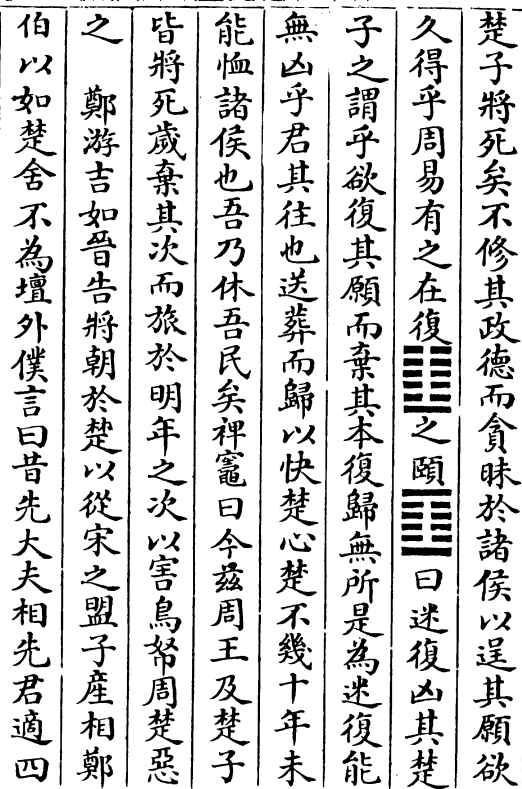 楚子將死矣不修其政德而貪昧於諸侯以逞其願欲
久得乎周易有之在復䷗之頤䷚曰迷復凶其楚
子之謂乎欲復其願而棄其本復歸無所是為迷復能
無凶乎君其往也送葬而歸以快楚心楚不幾十年未
能恤諸侯也吾乃休吾民矣裨竈曰今茲周王及楚子
皆將死歲棄其次而旅於明年之次以害鳥帑周楚惡
之　鄭游吉如晉告將朝於楚以從宋之盟子產相鄭
伯以如楚舍不為壇外僕言曰昔先大夫相先君適四